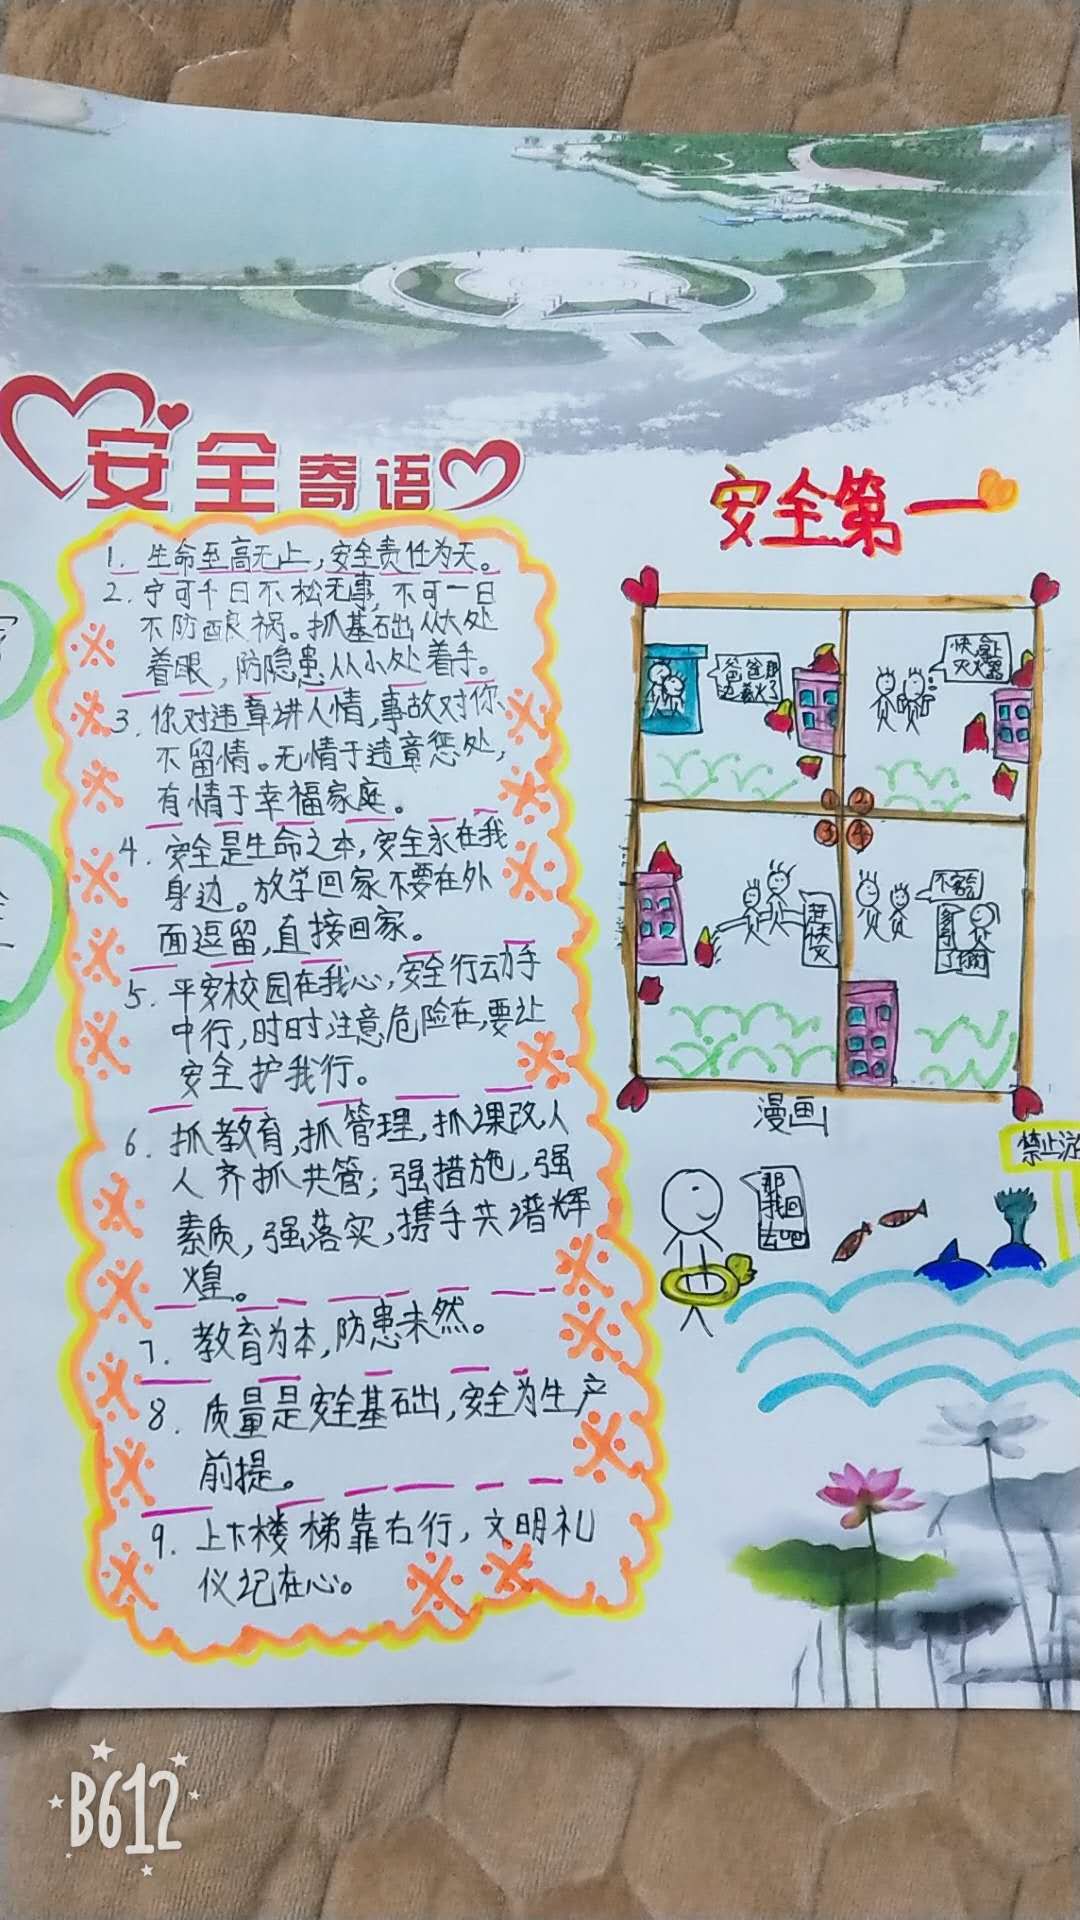 安全寄语
1. 生命至高无上，安全责任为天。
2. 宁可千日不松无事，不可一日
不防酿祸。抓基础从大处
着眼，防隐患从小处着手。
3. 你对违章讲人情，事故对你
不留情。无情于违章惩处，
有情于幸福家庭。
4. 安全是生命之本，安全永在我
身边。放学回家不要在外
面逗留，直接回家。
5. 平安校园在我心，安全行动手
中行，时时注意危险在，要让
安全护我行。
6. 抓教育，抓管理，抓课改，人
人齐抓共管；强措施，强
素质，强落实，携手共谱辉
煌。
7. 教育为本，防患未然。
8. 质量是安全基础，安全为生产
前提。
9. 上下楼梯靠右行，文明礼
仪记在心。
安全第一
爸爸那
边着火了
快拿上
灭火器
① ②
③ ④
赶快灭火
不客气
漫画
禁止游
那
我回
去吧
B612